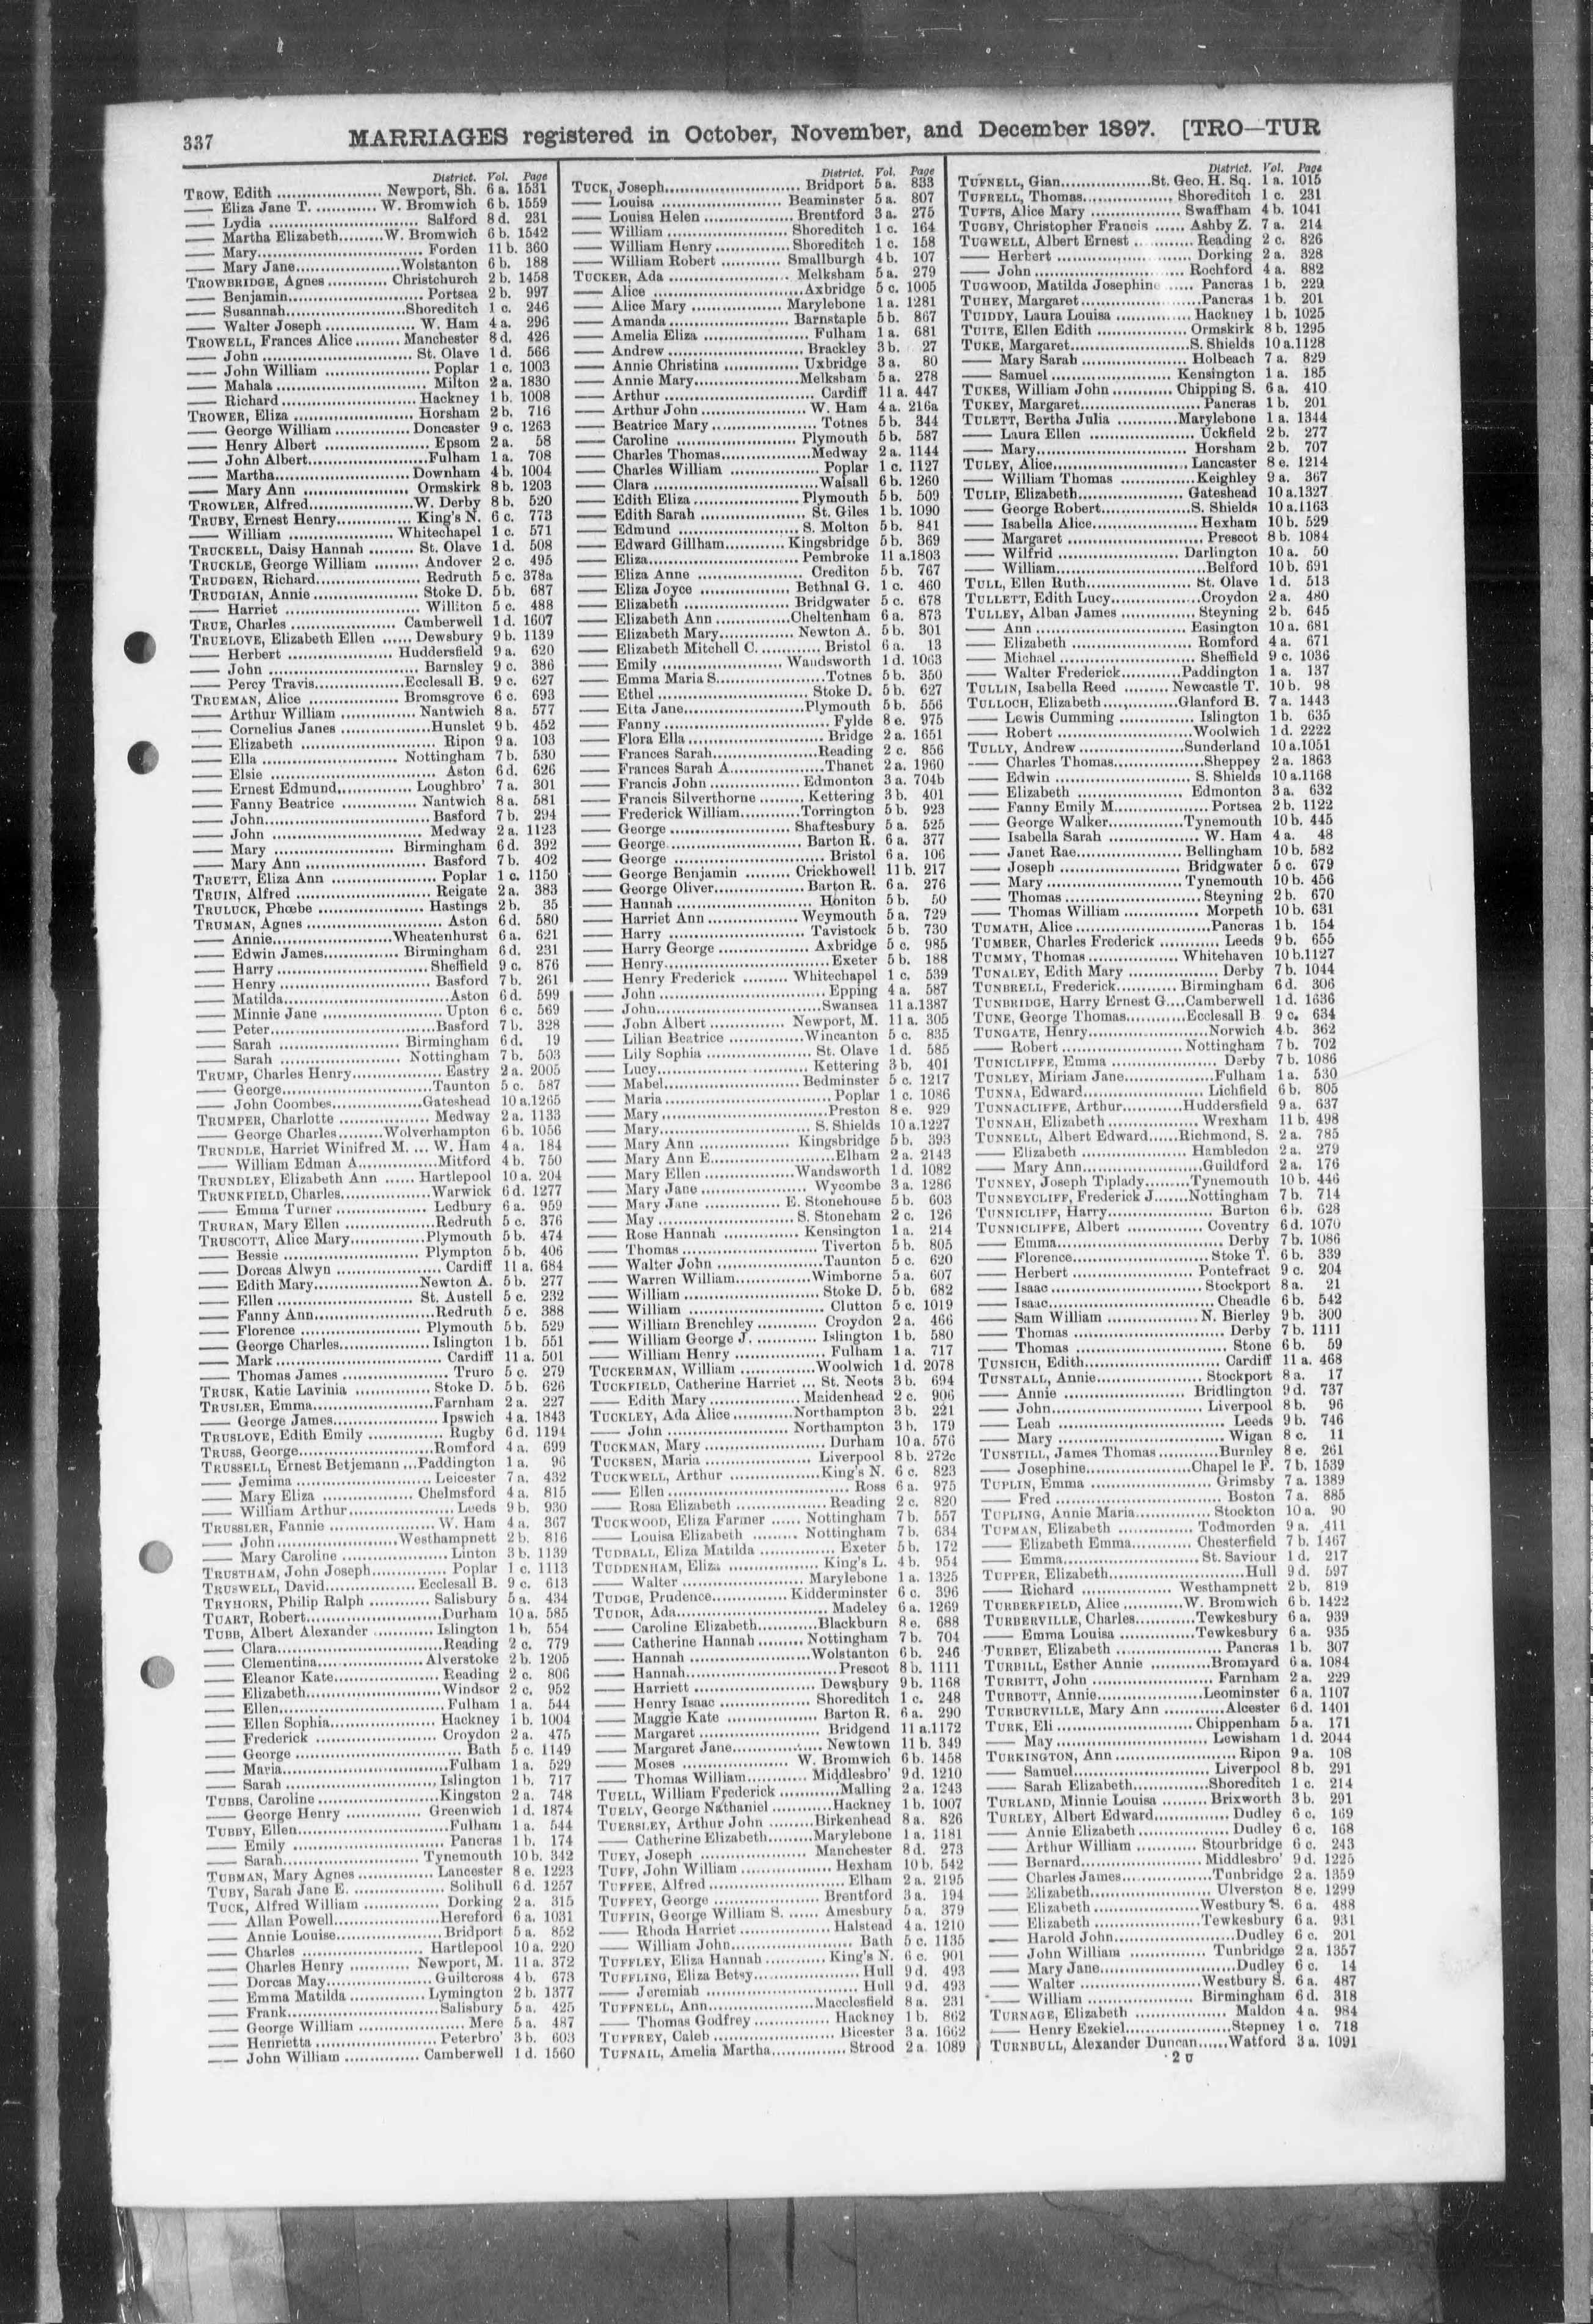 337 MARRIAGES registered in October, November, and December 1897. [TRO—TUR
District. Vol. Page
TROW, Edith ..................... Newport, Sh. 6 a. 1531
—— Eliza Jane T. ............ W. Bromwich 6 b. 1559
—— Lydia .............................. Salford 8 d. 231
—— Martha Elizabeth.........W. Bromwich 6 b. 1542
—— Mary................................. Forden 11 b. 360
—— Mary Jane.....................Wolstanton 6 b. 188
TROWBRIDGE, Agnes ............ Christchurch 2 b. 1458
—— Benjamin........................... Portsea 2 b. 997
—— Susannah........................Shoreditch 1 c. 246
—— Walter Joseph .................. W. Ham 4 a. 296
TROWELL, Frances Alice ......... Manchester 8 d. 426
—— John .............................. St. Olave 1 d. 566
—— John William ..................... Poplar 1 c. 1003
—— Mahala .............................. Milton 2 a. 1830
—— Richard ........................... Hackney 1 b. 1008
TROWER, Eliza ........................ Horsham 2 b. 716
—— George William ............... Doncaster 9 c. 1263
—— Henry Albert ..................... Epsom 2 a. 58
—— John Albert........................Fulham 1 a. 708
—— Martha...........................Downham 4 b. 1004
—— Mary Ann ..................... Ormskirk 8 b. 1203
TROWLER, Alfred.....................W. Derby 8 b. 520
TRUBY, Ernest Henry............... King's N. 6 c. 773
—— William ........................ Whitechapel 1 c. 571
TRUCKELL, Daisy Hannah ......... St. Olave 1 d. 508
TRUCKLE, George William ......... Andover 2 c. 495
TRUDGEN, Richard..................... Redruth 5 c. 378a
TRUDGIAN, Annie..................... Stoke D. 5 b. 687
—— Harriet ........................... Williton 5 c. 488
TRUE, Charles ..................... Camberwell 1 d. 1607
TRUELOVE, Elizabeth Ellen ...... Dewsbury 9 b. 1139
—— Herbert ..................... Huddersfield 9 a. 620
—— John .............................. Barnsley 9 c. 386
—— Percy Travis..................Ecclesall B. 9 c. 627
TRUEMAN, Alice .................. Bromsgrove 6 c. 693
—— Arthur William ............... Nantwich 8 a. 577
—— Cornelius Janes ..................Hunslet 9 b. 452
—— Elizabeth ........................... Ripon 9 a. 103
—— Ella ........................... Nottingham 7 b. 530
—— Elsie ................................. Aston 6 d. 626
—— Ernest Edmund............... Loughbro' 7 a. 301
—— Fanny Beatrice ............... Nantwich 8 a. 581
—— John.................................Basford 7 b. 294
—— John .............................. Medway 2 a. 1123
—— Mary ........................ Birmingham 6 d. 392
—— Mary Ann ........................ Basford 7 b. 402
TRUETT, Eliza Ann ..................... Poplar 1 c. 1150
TRUIN, Alfred ........................... Reigate 2 a. 383
TRULUCK, Phœbe ..................... Hastings 2 b. 35
TRUMAN, Agnes ........................... Aston 6 d. 580
—— Annie........................Wheatenhurst 6 a. 621
—— Edwin James............... Birmingham 6 d. 231
—— Harry .............................. Sheffield 9 c. 876
—— Henry .............................. Basford 7 b. 261
—— Matilda.................................Aston 6 d. 599
—— Minnie Jane ........................ Upton 6 c. 569
—— Peter.................................Basford 7 b. 328
—— Sarah ........................ Birmingham 6 d. 19
—— Sarah ........................ Nottingham 7 b. 503
TRUMP, Charles Henry.................. Eastry 2 a. 2005
—— George..............................Taunton 5 c. 587
—— John Coombes..................Gateshead 10 a.1265
TRUMPER, Charlotte .................. Medway 2 a. 1133
—— George Charles.........Wolverhampton 6 b. 1056
TRUNDLE, Harriet Winifred M. ... W. Ham 4 a. 184
—— William Edman A...............Mitford 4 b. 750
TRUNDLEY, Elizabeth Ann ...... Hartlepool 10 a. 204
TRUNKFIELD, Charles..................Warwick 6 d. 1277
—— Emma Turner .................. Ledbury 6 a. 959
TRURAN, Mary Ellen ..................Redruth 5 c. 376
TRUSCOTT, Alice Mary...............Plymouth 5 b. 474
—— Bessie ........................... Plympton 5 b. 406
—— Dorcas Alwyn ..................... Cardiff 11 a. 684
—— Edith Mary.....................Newton A. 5 b. 277
—— Ellen ........................... St. Austell 5 c. 232
—— Fanny Ann........................Redruth 5 c. 388
—— Florence ........................ Plymouth 5 b. 529
—— George Charles..................Islington 1 b. 551
—— Mark .................................Cardiff 11 a. 501
—— Thomas James ..................... Truro 5 c. 279
TRUSK, Katie Lavinia ............... Stoke D. 5 b. 626
TRUSLER, Emma........................Farnham 2 a. 227
—— George James..................... Ipswich 4 a. 1843
TRUSLOVE, Edith Emily ............... Rugby 6 d. 1194
TRUSS, George...........................Romford 4 a. 699
TRUSSELL, Ernest Betjemann ...Paddington 1 a. 96
—— Jemima ........................... Leicester 7 a. 432
—— Mary Eliza .................. Chelmsford 4 a. 815
—— William Arthur.....................Leeds 9 b. 930
TRUSSLER, Fannie ..................... W. Ham 4 a. 367
—— John........................Westhampnett 2 b. 816
—— Mary Caroline ..................... Linton 3 b. 1139
TRUSTHAM, John Joseph............... Poplar 1 c. 1113
TRUSWELL, David.................. Ecclesall B. 9 c. 613
TRYHORN, Philip Ralph ............ Salisbury 5 a. 434
TUART, Robert...........................Durham 10 a. 585
TUBB, Albert Alexander ............ Islington 1 b. 554
—— Clara.................................Reading 2 c. 779
—— Clementina.....................Alverstoke 2 b. 1205
—— Eleanor Kate..................... Reading 2 c. 806
—— Elizabeth...........................Windsor 2 c. 952
—— Ellen.................................Fulham 1 a. 544
—— Ellen Sophia..................... Hackney 1 b. 1004
—— Frederick ........................ Croydon 2 a. 475
—— George ................................. Bath 5 c. 1149
—— Maria.................................Fulham 1 a. 529
—— Sarah .............................. Islington 1 b. 717
TUBBS, Caroline ........................Kingston 2 a. 748
—— George Henry ............... Greenwich 1 d. 1874
TUBBY, Ellen..............................Fulham 1 a. 544
—— Emily .............................. Pancras 1 b. 174
—— Sarah........................... Tynemouth 10 b. 342
TUBMAN, Mary Agnes ............... Lancaster 8 e. 1223
TUBY, Sarah Jane E. .................. Solihull 6 d. 1257
TUCK, Alfred William ............... Dorking 2 a. 315
—— Allan Powell.....................Hereford 6 a. 1031
—— Annie Louise..................... Bridport 5 a. 852
—— Charles ........................ Hartlepool 10 a. 220
—— Charles Henry ............ Newport, M. 11 a. 372
—— Dorcas May..................... Guiltcross 4 b. 673
—— Emma Matilda ............... Lymington 2 b. 1377
—— Frank..............................Salisbury 5 a. 425
—— George William ..................... Mere 5 a. 487
—— Henrietta ........................ Peterbro' 3 b. 603
—— John William ............... Camberwell 1 d. 1560
District. Vol. Page
TUCK, Joseph........................... Bridport 5 a. 833
—— Louisa ........................ Beaminster 5 a. 807
—— Louisa Helen .................. Brentford 3 a. 275
—— William ........................ Shoreditch 1 c. 164
—— William Henry ............... Shoreditch 1 c. 158
—— William Robert ............ Smallburgh 4 b. 107
TUCKER, Ada ........................ Melksham 5 a. 279
—— Alice .............................. Axbridge 5 c. 1005
—— Alice Mary .................. Marylebone 1 a. 1281
—— Amanda ........................ Barnstaple 5 b. 867
—— Amelia Eliza ..................... Fulham 1 a. 681
—— Andrew ........................... Brackley 3 b. 27
—— Annie Christina ............... Uxbridge 3 a. 80
—— Annie Mary.....................Melksham 5 a. 278
—— Arthur .............................. Cardiff 11 a. 447
—— Arthur John ..................... W. Ham 4 a. 216a
—— Beatrice Mary..................... Totnes 5 b. 344
—— Caroline ........................ Plymouth 5 b. 587
—— Charles Thomas..................Medway 2 a. 1144
—— Charles William .................. Poplar 1 c. 1127
—— Clara .................................Walsall 6 b. 1260
—— Edith Eliza ..................... Plymouth 5 b. 509
—— Edith Sarah ..................... St. Giles 1 b. 1090
—— Edmund ........................ S. Molton 5 b. 841
—— Edward Gillham............ Kingsbridge 5 b. 369
—— Eliza.............................. Pembroke 11 a.1803
—— Eliza Anne ..................... Crediton 5 b. 767
—— Eliza Joyce .................. Bethnal G. 1 c. 460
—— Elizabeth ..................... Bridgwater 5 c. 678
—— Elizabeth Ann ...............Cheltenham 6 a. 873
—— Elizabeth Mary............... Newton A. 5 b. 301
—— Elizabeth Mitchell C. ............ Bristol 6 a. 13
—— Emily ........................ Wandsworth 1 d. 1063
—— Emma Maria S......................Totnes 5 b. 350
—— Ethel .............................. Stoke D. 5 b. 627
—— Etta Jane........................Plymouth 5 b. 556
—— Fanny ................................. Fylde 8 e. 975
—— Flora Ella ........................... Bridge 2 a. 1651
—— Frances Sarah.....................Reading 2 c. 856
—— Frances Sarah A..................Thanet 2 a. 1960
—— Francis John .................. Edmonton 3 a. 704b
—— Francis Silverthorne ......... Kettering 3 b. 401
—— Frederick William............Torrington 5 b. 923
—— George ........................ Shaftesbury 5 a. 525
—— George........................... Barton R. 6 a. 377
—— George .............................. Bristol 6 a. 106
—— George Benjamin ......... Crickhowell 11 b. 217
—— George Oliver.................. Barton R. 6 a. 276
—— Hannah ........................... Honiton 5 b. 50
—— Harriet Ann ..................Weymouth 5 a. 729
—— Harry ........................... Tavistock 5 b. 730
—— Harry George .................. Axbridge 5 c. 985
—— Henry................................. Exeter 5 b. 188
—— Henry Frederick ......... Whitechapel 1 c. 539
—— John ................................. Epping 4 a. 587
—— John.................................Swansea 11 a.1387
—— John Albert ............... Newport, M. 11 a. 305
—— Lilian Beatrice ...............Wincanton 5 c. 835
—— Lily Sophia ..................... St. Olave 1 d. 585
—— Lucy.............................. Kettering 3 b. 401
—— Mabel........................... Bedminster 5 c. 1217
—— Maria ................................. Poplar 1 c. 1086
—— Mary .................................Preston 8 e. 929
—— Mary.............................. S. Shields 10 a.1227
—— Mary Ann ..................... Kingsbridge 5 b. 393
—— Mary Ann E.........................Elham 2 a. 2143
—— Mary Ellen .....................Wandsworth 1 d. 1082
—— Mary Jane ..................... Wycombe 3 a. 1286
—— Mary Jane ............... E. Stonehouse 5 b. 603
—— May ........................... S. Stoneham 2 c. 126
—— Rose Hannah ............... Kensington 1 a. 214
—— Thomas .............................. Tiverton 5 b. 805
—— Walter John .....................Taunton 5 c. 620
—— Warren William...............Wimborne 5 a. 607
—— William ........................... Stoke D. 5 b. 682
—— William ........................... Clutton 5 c. 1019
—— William Brenchley ............ Croydon 2 a. 466
—— William George J. ............ Islington 1 b. 580
—— William Henry .................. Fulham 1 a. 717
TUCKERMAN, William ...............Woolwich 1 d. 2078
TUCKFIELD, Catherine Harriet ... St. Neots 3 b. 694
—— Edith Mary .................. Maidenhead 2 c. 906
TUCKLEY, Ada Alice ............Northampton 3 b. 221
—— John ........................ Northampton 3 b. 179
TUCKMAN, Mary ........................ Durham 10 a. 576
TUCKSEN, Maria ..................... Liverpool 8 b. 272c
TUCKWELL, Arthur ..................King's N. 6 c. 823
—— Ellen .................................... Ross 6 a. 975
—— Rosa Elizabeth .................. Reading 2 c. 820
TUCKWOOD, Eliza Farmer ...... Nottingham 7 b. 557
—— Louisa Elizabeth ......... Nottingham 7 b. 634
TUDBALL, Eliza Matilda ............... Exeter 5 b. 172
TUDDENHAM, Eliza ..................... King's L. 4 b. 954
—— Walter ........................ Marylebone 1 a. 1325
TUDGE, Prudence............... Kidderminster 6 c. 396
TUDOR, Ada.............................. Madeley 6 a. 1269
—— Caroline Elizabeth............Blackburn 8 e. 688
—— Catherine Hannah ......... Nottingham 7 b. 704
—— Hannah ........................Wolstanton 6 b. 246
—— Hannah..............................Prescot 8 b. 1111
—— Harriett ........................ Dewsbury 9 b. 1168
—— Henry Isaac .................. Shoreditch 1 c. 248
—— Maggie Kate .................. Barton R. 6 a. 290
—— Margaret ........................ Bridgend 11 a.1172
—— Margaret Jane.................. Newtown 11 b. 349
—— Moses ........................ W. Bromwich 6 b. 1458
—— Thomas William............ Middlesbro' 9 d. 1210
TUELL, William Frederick ............Malling 2 a. 1243
TUELY, George Nathaniel ............Hackney 1 b. 1007
TUERSLEY, Arthur John .........Birkenhead 8 a. 826
—— Catherine Elizabeth.........Marylebone 1 a. 1181
TUEY, Joseph ........................ Manchester 8 d. 273
TUFF, John William .................. Hexham 10 b. 542
TUFFEE, Alfred ........................... Elham 2 a. 2195
TUFFEY, George ..................... Brentford 3 a. 194
TUFFIN, George William S. ...... Amesbury 5 a. 379
—— Rhoda Harriet .................. Halstead 4 a. 1210
—— William John........................ Bath 5 c. 1135
TUFFLEY, Eliza Hannah ............ King's N. 6 c. 901
TUFFLING, Eliza Betsy..................... Hull 9 d. 493
—— Jeremiah .............................. Hull 9 d. 493
TUFFNELL, Ann.....................Macclesfield 8 a. 231
—— Thomas Godfrey ............... Hackney 1 b. 862
TUFFREY, Caleb ........................ Bicester 3 a. 1662
TUFNAIL, Amelia Martha............... Strood 2 a. 1089
District. Vol. Page
TUFNELL, Gian..................St. Geo. H. Sq. 1 a. 1015
TUFRELL, Thomas.................. Shoreditch 1 c. 231
TUFTS, Alice Mary .................. Swaffham 4 b. 1041
TUGBY, Christopher Francis ...... Ashby Z. 7 a. 214
TUGWELL, Albert Ernest ............ Reading 2 c. 826
—— Herbert ........................... Dorking 2 a. 328
—— John .............................. Rochford 4 a. 882
TUGWOOD, Matilda Josephine ...... Pancras 1 b. 229
TUHEY, Margaret........................Pancras 1 b. 201
TUIDDY, Laura Louisa ............... Hackney 1 b. 1025
TUITE, Ellen Edith .................. Ormskirk 8 b. 1295
TUKE, Margaret........................S. Shields 10 a.1128
—— Mary Sarah ..................... Holbeach 7 a. 829
—— Samuel ........................ Kensington 1 a. 185
TUKES, William John ............ Chipping S. 6 a. 410
TUKEY, Margaret........................ Pancras 1 b. 201
TULETT, Bertha Julia ............Marylebone 1 a. 1344
—— Laura Ellen ..................... Uckfield 2 b. 277
—— Mary.............................. Horsham 2 b. 707
TULEY, Alice........................... Lancaster 8 e. 1214
—— William Thomas ...............Keighley 9 a. 367
TULIP, Elizabeth..................... Gateshead 10 a.1327
—— George Robert..................S. Shields 10 a.1163
—— Isabella Alice..................... Hexham 10 b. 529
—— Margaret ........................... Prescot 8 b. 1084
—— Wilfrid ........................ Darlington 10 a. 50
—— William..............................Belford 10 b. 691
TULL, Ellen Ruth..................... St. Olave 1 d. 513
TULLETT, Edith Lucy..................Croydon 2 a. 480
TULLEY, Alban James ............... Steyning 2 b. 645
—— Ann .............................. Easington 10 a. 681
—— Elizabeth ........................ Romford 4 a. 671
—— Michael ........................... Sheffield 9 c. 1036
—— Walter Frederick............Paddington 1 a. 137
TULLIN, Isabella Reed ......... Newcastle T. 10 b. 98
TULLOCH, Elizabeth...............Glanford B. 7 a. 1443
—— Lewis Cumming ............... Islington 1 b. 635
—— Robert ...........................Woolwich 1 d. 2222
TULLY, Andrew .....................Sunderland 10 a.1051
—— Charles Thomas..................Sheppey 2 a. 1863
—— Edwin ........................... S. Shields 10 a.1168
—— Elizabeth ..................... Edmonton 3 a. 632
—— Fanny Emily M..................Portsea 2 b. 1122
—— George Walker...............Tynemouth 10 b. 445
—— Isabella Sarah .................. W. Ham 4 a. 48
—— Janet Rae..................... Bellingham 10 b. 582
—— Joseph ........................ Bridgwater 5 c. 679
—— Mary ........................... Tynemouth 10 b. 456
—— Thomas ........................... Steyning 2 b. 670
—— Thomas William ............... Morpeth 10 b. 631
TUMATH, Alice ........................... Pancras 1 b. 154
TUMBER, Charles Frederick ............ Leeds 9 b. 655
TUMMY, Thomas .................. Whitehaven 10 b.1127
TUNALEY, Edith Mary .................. Derby 7 b. 1044
TUNBRELL, Frederick............ Birmingham 6 d. 306
TUNBRIDGE, Harry Ernest G....Camberwell 1 d. 1636
TUNE, George Thomas............Ecclesall B 9 c. 634
TUNGATE, Henry........................Norwich 4 b. 362
—— Robert ........................ Nottingham 7 b. 702
TUNICLIFFE, Emma ..................... Derby 7 b. 1086
TUNLEY, Miriam Jane..................Fulham 1 a. 530
TUNNA, Edward........................ Lichfield 6 b. 805
TUNNACLIFFE, Arthur............Huddersfield 9 a. 637
TUNNAH, Elizabeth .................. Wrexham 11 b. 498
TUNNELL, Albert Edward......Richmond, S. 2 a. 785
—— Elizabeth ..................... Hambledon 2 a. 279
—— Mary Ann........................Guildford 2 a. 176
TUNNEY, Joseph Tiplady.........Tynemouth 10 b. 446
TUNNEYCLIFF, Frederick J.......Nottingham 7 b. 714
TUNNICLIFF, Harry..................... Burton 6 b. 628
TUNNICLIFFE, Albert ............... Coventry 6 d. 1070
—— Emma................................. Derby 7 b. 1086
—— Florence........................... Stoke T. 6 b. 339
—— Herbert ........................ Pontefract 9 c. 204
—— Isaac .............................. Stockport 8 a. 21
—— Isaac................................. Cheadle 6 b. 542
—— Sam William .................. N. Bierley 9 b. 300
—— Thomas .............................. Derby 7 b. 1111
—— Thomas .............................. Stone 6 b. 59
TUNSICH, Edith........................... Cardiff 11 a. 468
TUNSTALL, Annie..................... Stockport 8 a. 17
—— Annie ........................ Bridlington 9 d. 737
—— John.............................. Liverpool 8 b. 96
—— Leah ................................. Leeds 9 b. 746
—— Mary ................................. Wigan 8 c. 11
TUNSTILL, James Thomas............Burnley 8 e. 261
—— Josephine.....................Chapel le F. 7 b. 1539
TUPLIN, Emma ........................ Grimsby 7 a. 1389
—— Fred ................................. Boston 7 a. 885
TUPLING, Annie Maria............... Stockton 10 a. 90
TUPMAN, Elizabeth ............... Todmorden 9 a. 411
—— Elizabeth Emma............ Chesterfield 7 b. 1467
—— Emma........................... St. Saviour 1 d. 217
TUPPER, Elizabeth........................Hull 9 d. 597
—— Richard .................. Westhampnett 2 b. 819
TURBERFIELD, Alice ............W. Bromwich 6 b. 1422
TURBERVILLE, Charles............Tewkesbury 6 a. 939
—— Emma Louisa ...............Tewkesbury 6 a. 935
TURBET, Elizabeth ..................... Pancras 1 b. 307
TURBILL, Esther Annie ............Bromyard 6 a. 1084
TURBITT, John ........................ Farnham 2 a. 229
TURBOTT, Annie.....................Leominster 6 a. 1107
TURBURVILLE, Mary Ann ............Alcester 6 d. 1401
TURK, Eli ........................... Chippenham 5 a. 171
—— May .............................. Lewisham 1 d. 2044
TURKINGTON, Ann ........................ Ripon 9 a. 108
—— Samuel........................... Liverpool 8 b. 291
—— Sarah Elizabeth...............Shoreditch 1 c. 214
TURLAND, Minnie Louisa ......... Brixworth 3 b. 291
TURLEY, Albert Edward............... Dudley 6 c. 169
—— Annie Elizabeth .................. Dudley 6 c. 168
—— Arthur William ............ Stourbridge 6 c. 243
—— Bernard........................ Middlesbro' 9 d. 1225
—— Charles James..................Tunbridge 2 a. 1359
—— Elizabeth........................ Ulverston 8 e. 1299
—— Elizabeth .....................Westbury S. 6 a. 488
—— Elizabeth .....................Tewkesbury 6 a. 931
—— Harold John........................Dudley 6 c. 201
—— John William ............... Tunbridge 2 a. 1357
—— Mary Jane...........................Dudley 6 c. 14
—— Walter ........................Westbury S. 6 a. 487
—— William ........................ Birmingham 6 d. 318
TURNAGE, Elizabeth .................. Maldon 4 a. 984
—— Henry Ezekiel.....................Stepney 1 c. 718
TURNBULL, Alexander Duncan......Watford 3 a. 1091
2 U